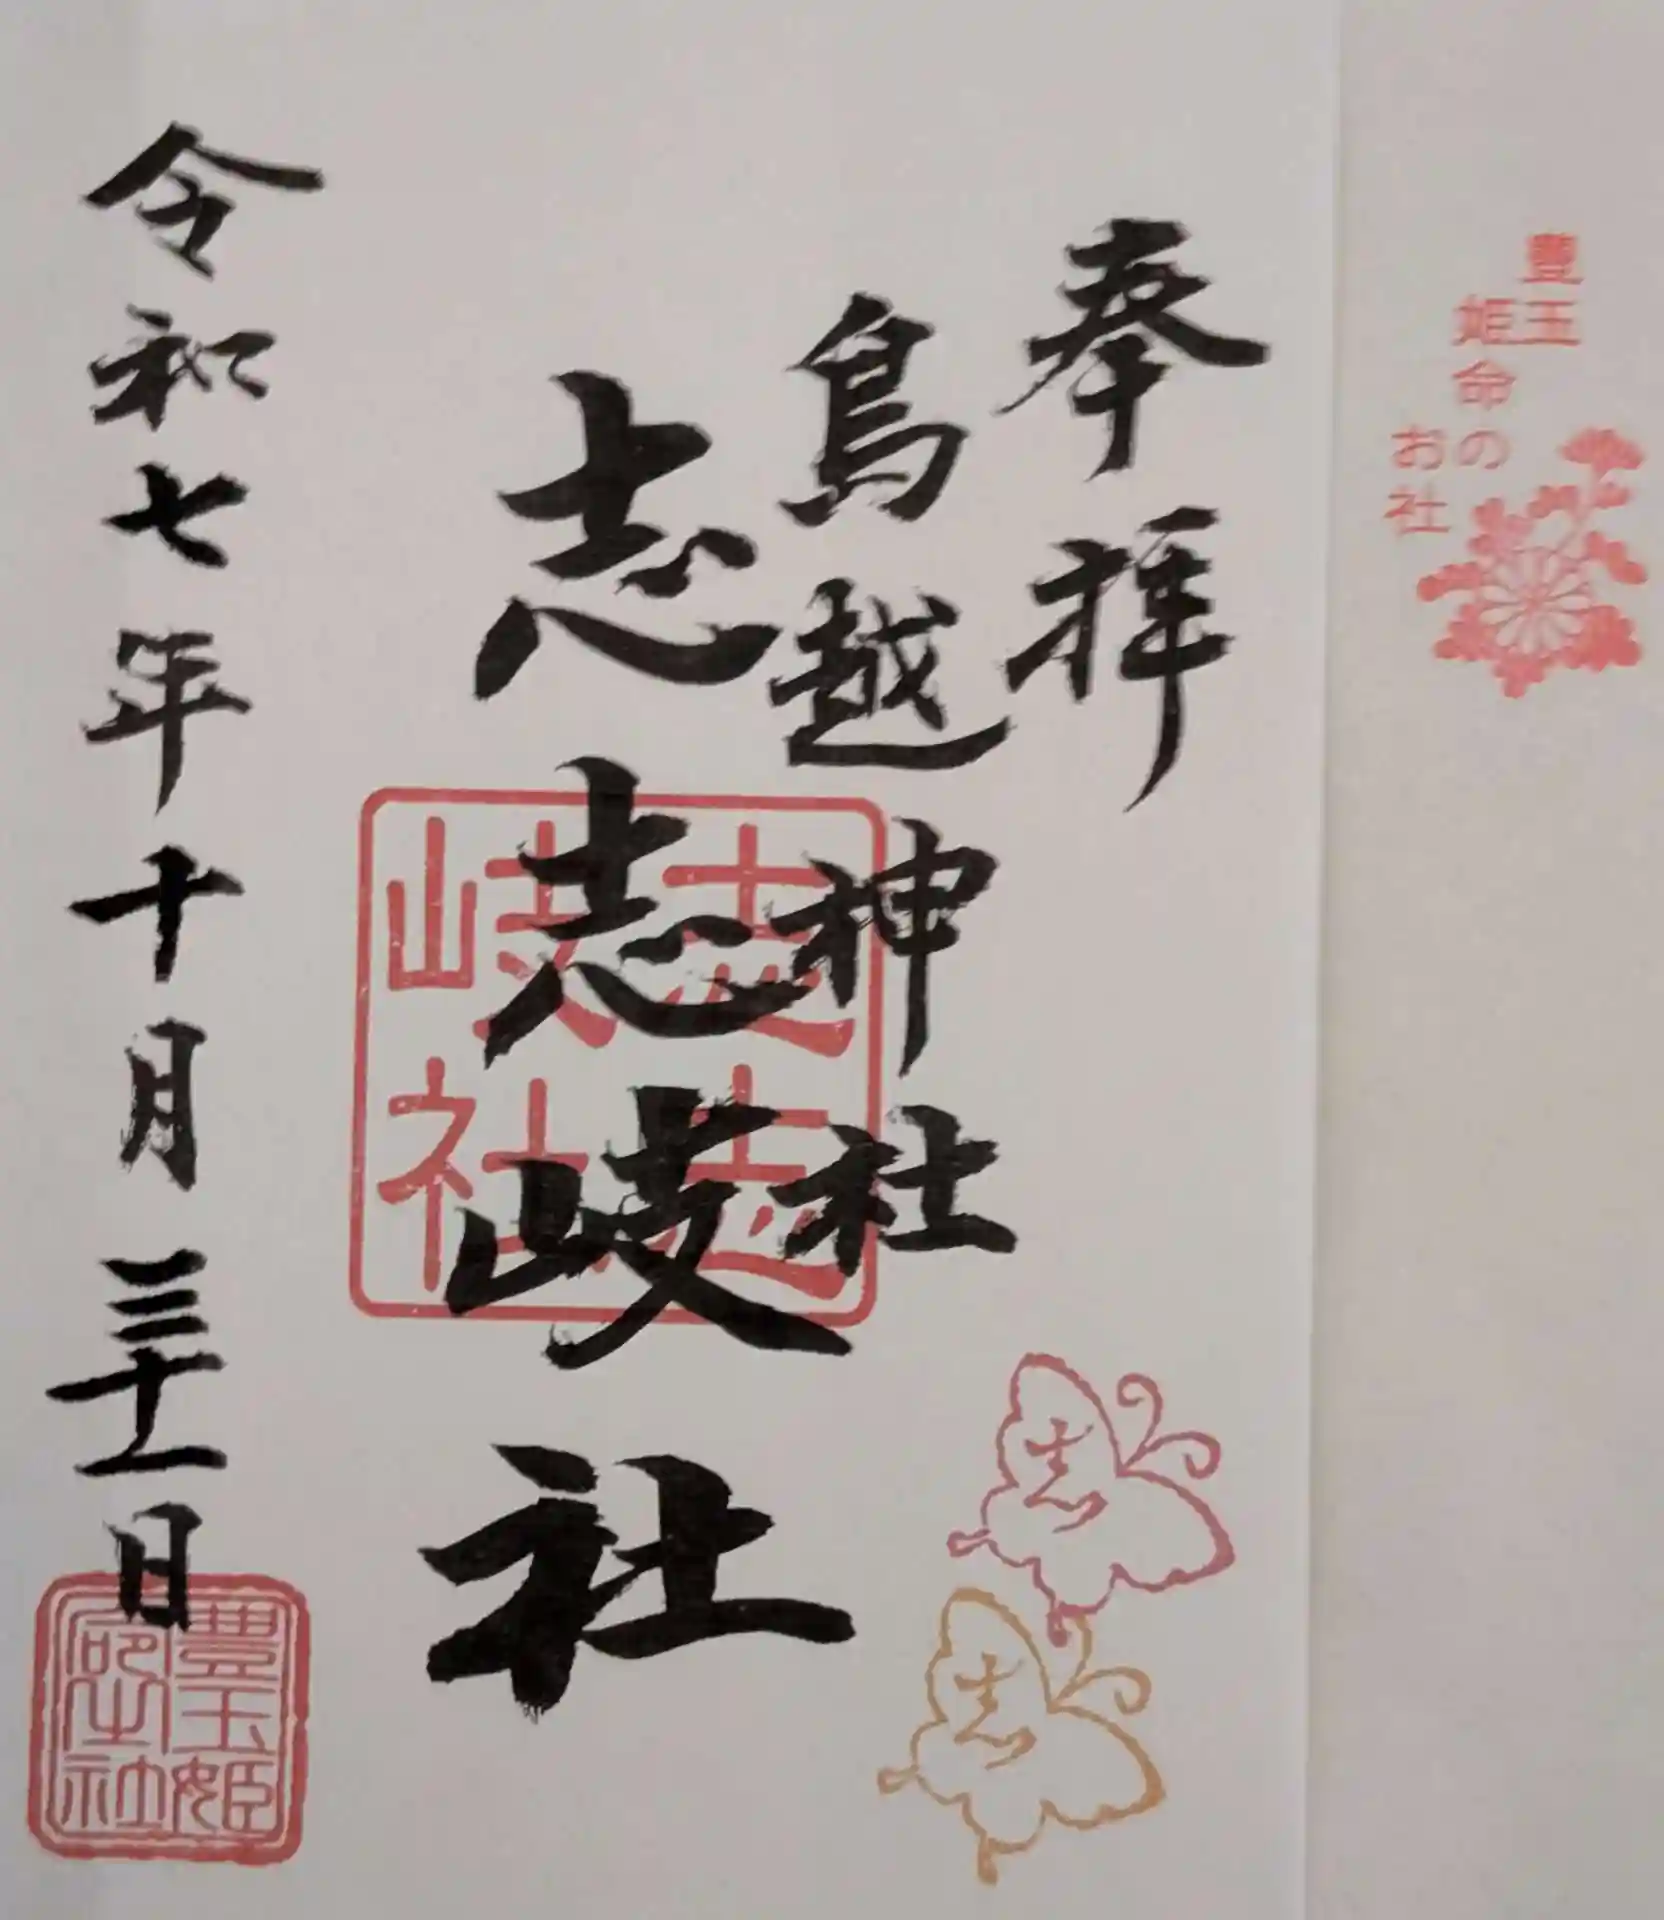 豊玉
姫命の
お社
奉拝
鳥越神社
志志岐社
志志
岐社
令和七年十月三十一日
豊玉姫
命之社
志
志